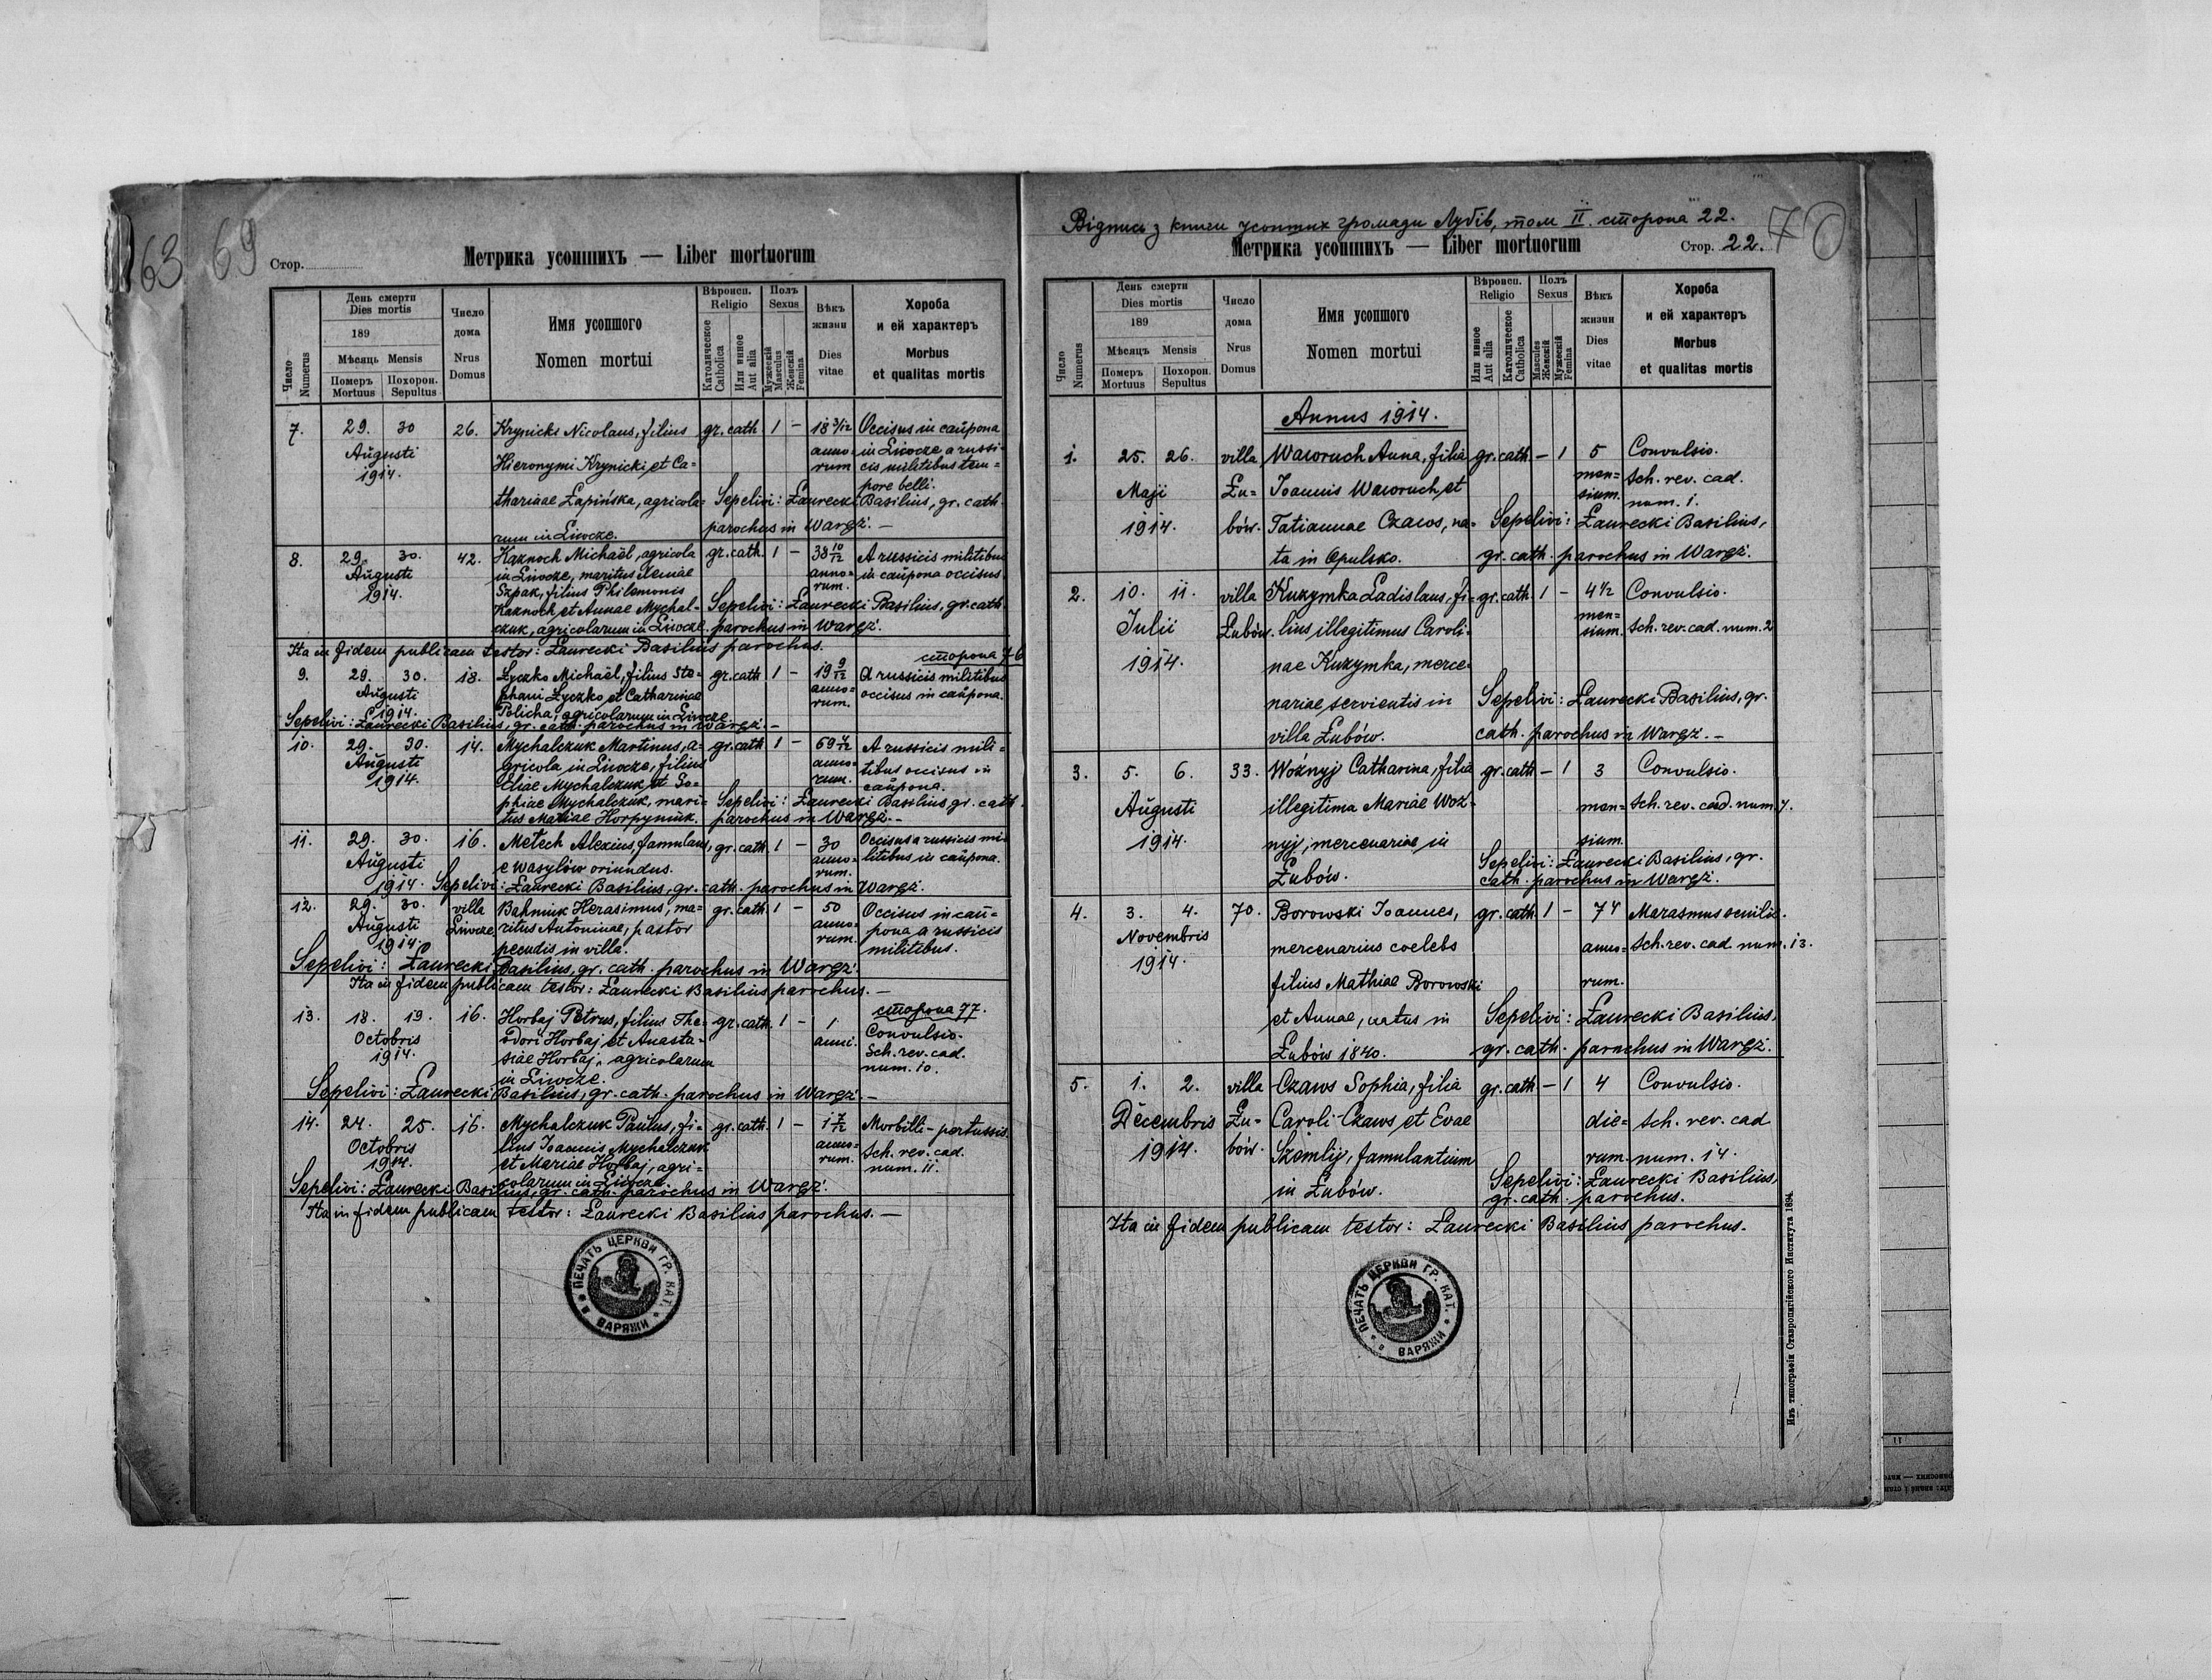 63 69
Стор.
Метрика усопшихъ — Liber mortuorum
Число Numerus
День смерти
Dies mortis
189
Мѣсяць Mensis
Померъ Mortuus
Похорон. Sepultus
Число дома
Nrus Domus
Имя усопшого
Nomen mortui
Вѣроисп. Religio
Католическое Catholica
Или инное Aut alia
Полъ Sexus
Мужескій Masculus
Женскій Femina
Вѣкъ жизни
Dies vitae
Хороба
и ей характеръ
Morbus
et qualitas mortis
7. 29. 30 26. Krynicki Nicolaus, filius gr. cath 1 – 18 3/12 Occisus in caŭpona
Augŭsti Hieronymi Krynicki et Ca= anno= in Liwcze a russi=
1914. rum cis militibus tem=
pore belli.
tharinae Łapińska, agricola= Sepelivi: Ławrecki Basilius, gr. cath.
rum in Liwcze. parochus in Waręż. —
8. 29. 30. 42. Kaznoch Michaël, agricola gr. cath. 1 – 38 10/12 A russicis militibus
Augŭsti in Liwcze, maritus Xeniae anno= in caŭpona occisus.
1914. Szpak, filius Philemonis rum.
Kaznoch et Annae Mychal= Sepelivi: Ławrecki Basilius, gr. cath.
czuk, agricolarum in Liwcze. parochus in Waręż.
Ita in fidem publicam testor: Ławrecki Basilius parochus.
сторона 76
9. 29. 30. 18. Łyczko Michaël, filius Ste= gr. cath 1 – 19 9/12 A russicis militibus
Augŭsti phani Łyczko et Catharinae anno= occisus in caŭpona.
1914. Policha, agricolarum in Liwcze. rum.
Sepelivi: Ławrecki Basilius, gr. cath. parochus in Waręż. —
10. 29. 30. 14. Mychalczuk Martinus, a= gr. cath 1 – 69 4/12 A russicis mili=
Augŭsti gricola in Liwcze, filius anno= tibus occisus in
1914. Eliae Mychalczuk et So= rum. caŭpona.
phiae Mychalczuk, mari= Sepelivi: Ławrecki Basilius gr. cath.
tus Mariae Horpyniuk. parochus in Waręż. —
11. 29. 30. 16. Metech Alexius famulans, gr. cath. 1 – 30 Occisus a russicis mi=
Augŭsti e Wasylów oriundus. anno= litibus in caŭpona.
rum.
1914. Sepelivi: Ławrecki Basilius, gr. cath. parochus in Waręż.
12. 29. 30. villa Bahniuk Herasimus, ma= gr. cath. 1 – 50 Occisus in caŭ=
Augŭsti Liwcze, ritus Antoninae, pastor anno= pona a russicis
1914. pecudis in villa. rum. militibus.
Sepelivi: Ławrecki Basilius, gr. cath. parochus in Waręż.
Ita in fidem publicam testor: Ławrecki Basilius parochus. —
сторона 77.
13. 18. 19. 16. Horbaj Petrus, filius The= gr. cath. 1 – 1 Convulsio.
Octobris odori Horbaj et Anasta= anni. Sch. rev. cad.
1914. siae Horbaj, agricolarum num. 10.
in Liwcze.
Sepelivi: Ławrecki Basilius, gr. cath. parochus in Waręż. —
14. 24. 25. 16. Mychalczuk Paŭlus, fi= gr. cath. 1 – 1 7/12 Morbilli – pertussis.
Octobris lius Ioannis Mychalczuk anno= Sch. rev. cad.
1914. et Mariae Horbaj, agri= rum. num. 11.
colarum in Liwcze.
Sepelivi: Ławrecki Basilius, gr. cath. parochus in Waręż.
Ita in fidem publicam testor: Ławrecki Basilius parochus. —
ПЕЧАТЬ ЦЕРКВИ ГР. КАТ. В ВАРЯЖИ
Відпись з книги усопших громади Лубів, том II. сторона 22.
Метрика усопшихъ — Liber mortuorum
Стор. 22.
70
Число Numerus
День смерти
Dies mortis
189
Мѣсяцъ Mensis
Померъ Mortuus
Похорон. Sepultus
Число дома
Nrus Domus
Имя усопшого
Nomen mortui
Вѣроисп. Religio
Или инное Aut alia
Католическое Catholica
Полъ Sexus
Masculus Женскій
Мужескій Femina
Вѣкъ жизни
Dies vitae
Хороба
и ей характеръ
Morbus
et qualitas mortis
Annus 1914.
1. 25. 26. villa Waworuch Anna, filia gr. cath. – 1 5 Convulsio.
Maji Łu= Ioannis Waworuch et men= Sch. rev. cad.
sium. num. 1.
1914. bów. Tatiannae Czaws, na= Sepelivi: Ławrecki Basilius,
ta in Opulsko. gr. cath. parochus in Waręż.
2. 10. 11. villa Kuzymka Ladislaus, fi= gr. cath. 1 – 4 1/2 Convulsio.
Julii Łubów. lius illegitimus Caroli= men= sium. Sch. rev. cad. num. 2
1914. nae Kuzymka, merce=
nariae servientis in Sepelivi: Ławrecki Basilius, gr.
villa Łubów. cath. parochus in Waręż. —
3. 5. 6. 33. Woźnyj Catharina, filia gr. cath – 1 3 Convulsio.
Augŭsti illegitima Mariae Woź= men= Sch. rev. cad. num. 7.
1914. nyj, mercenariae in sium.
Łubów. Sepelivi: Ławrecki Basilius, gr.
cath. parochus in Waręż.
4. 3. 4. 70. Borowski Ioannes, gr. cath. 1 – 74 Marasmus senilis.
Novembris mercenarius coelebs anno= Sch. rev. cad. num. 13.
1914. filius Mathiae Borowski rum.
et Annae, natus in Sepelivi: Ławrecki Basilius,
Łubów 1840. gr. cath. parochus in Waręż.
5. 1. 2. villa Czaws Sophia, filia gr. cath – 1 4 Convulsio.
Decembris Łu= Caroli Czaws et Evae die= Sch. rev. cad
1914. bów. Szemlij, famulantium rum. num. 14.
in Łubów. Sepelivi: Ławrecki Basilius,
gr. cath. parochus.
Ita in fidem publicam testor: Ławrecki Basilius parochus.
ПЕЧАТЬ ЦЕРКВИ ГР. КАТ. В ВАРЯЖИ
Изъ типографіи Ставропигійского Института 1894.